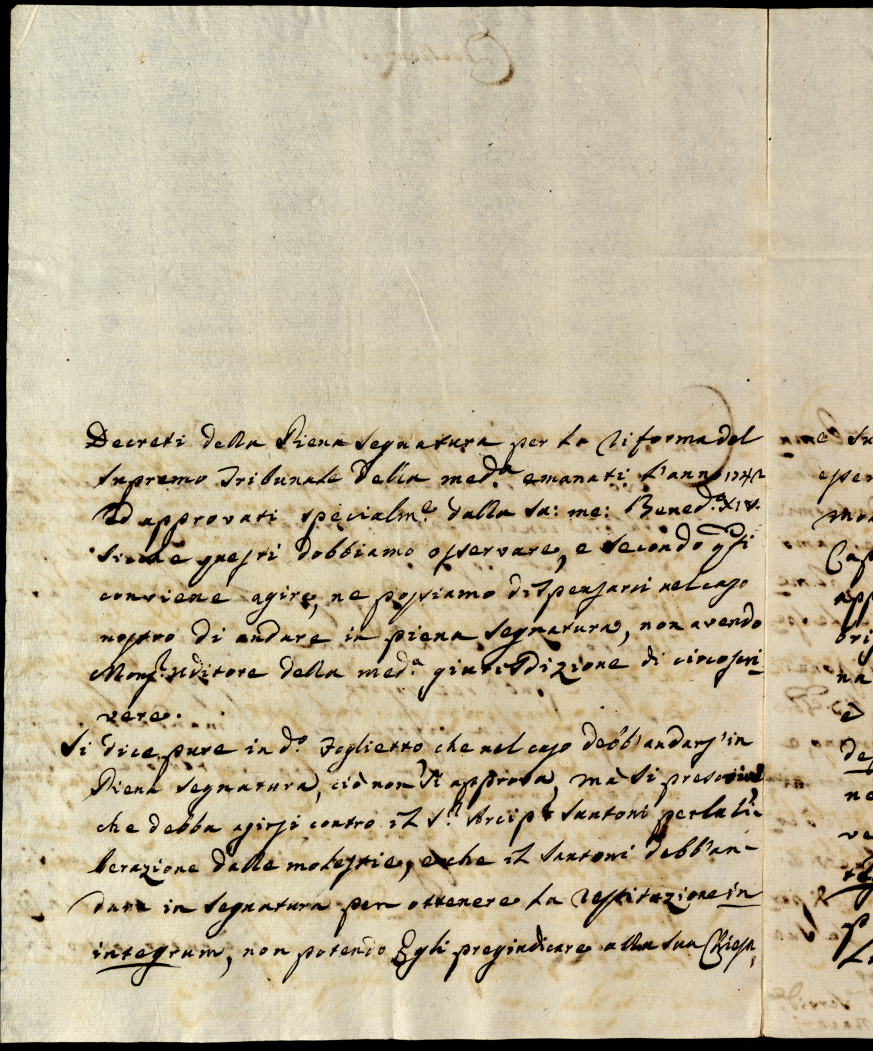 Decreti della Piena Segnatura per la Riforma del
Supremo Tribunale della med.ª emanati l'anno
ed approvati specialm.e dalla Sa: me: Bened.º XIV.
Sicchè questi dobbiamo osservare, e secondo qsti
conviene agire, ne possiamo dispensarsi nel caso
nostro di andare in piena Segnatura, non avendo
Mons.r Uditore della med.ª giurisdizione di circoscri-
vere.
Si dice pure in d.º Foglietto che nel caso debb'andars'in
Piena Segnatura, ciò non si approva, mà si prescrive,
che debba agirsi contro il S.r Arcip.e Santoni per la li-
berazione dalle molestie, e che il Santoni debb'an-
dare in Segnatura per ottenere la restituzione in
integrum, non potendo Egli pregiudicare alla sua Chiesa,